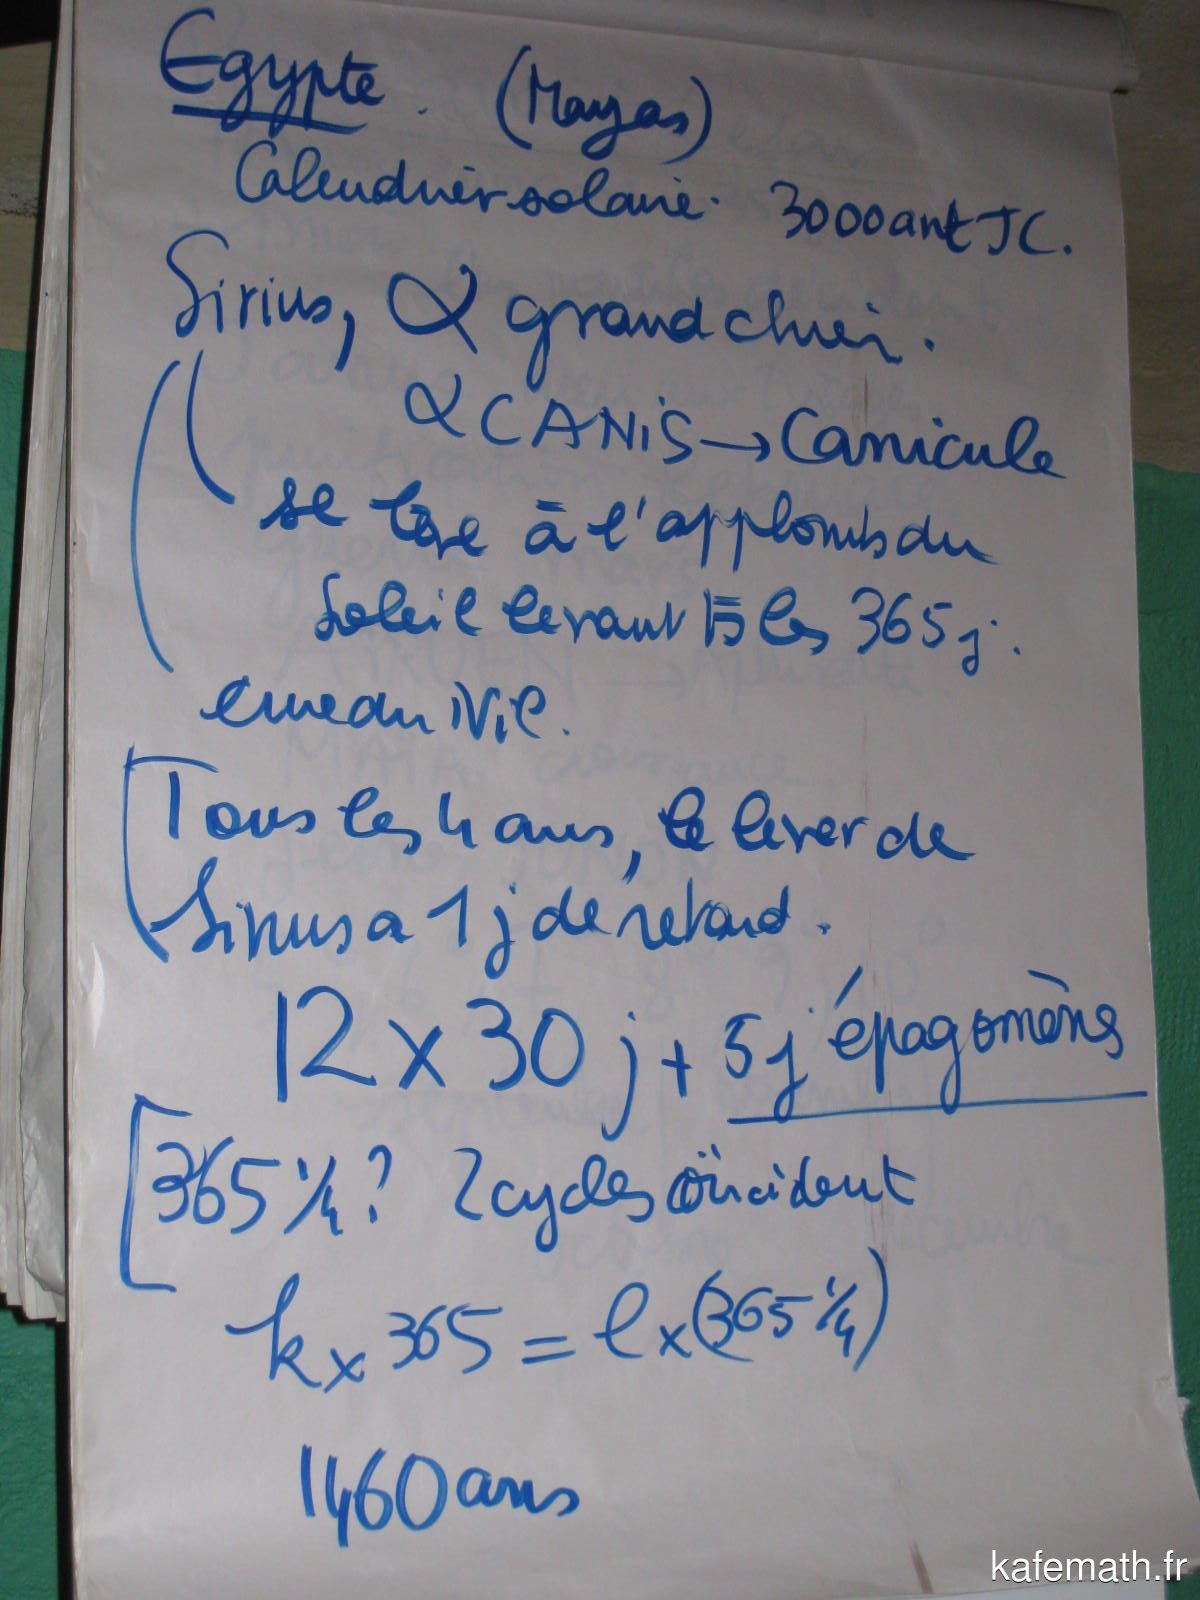 Egypte. (Mayas)
Calendrier solaire. 3000 ant JC.
Sirius, α grand chien.
α CANiS → Canicule
se lève à l'applomb du
soleil levant ts les 365 j.
crue du Nil.
Tous les 4 ans, le lever de
Sirius a 1 j de retard.
12 x 30 j + 5 j épagomènes
365 1/4 ? 2 cycles coïncident
k x 365 = l x (365 1/4)
1460 ans
kafemath.fr